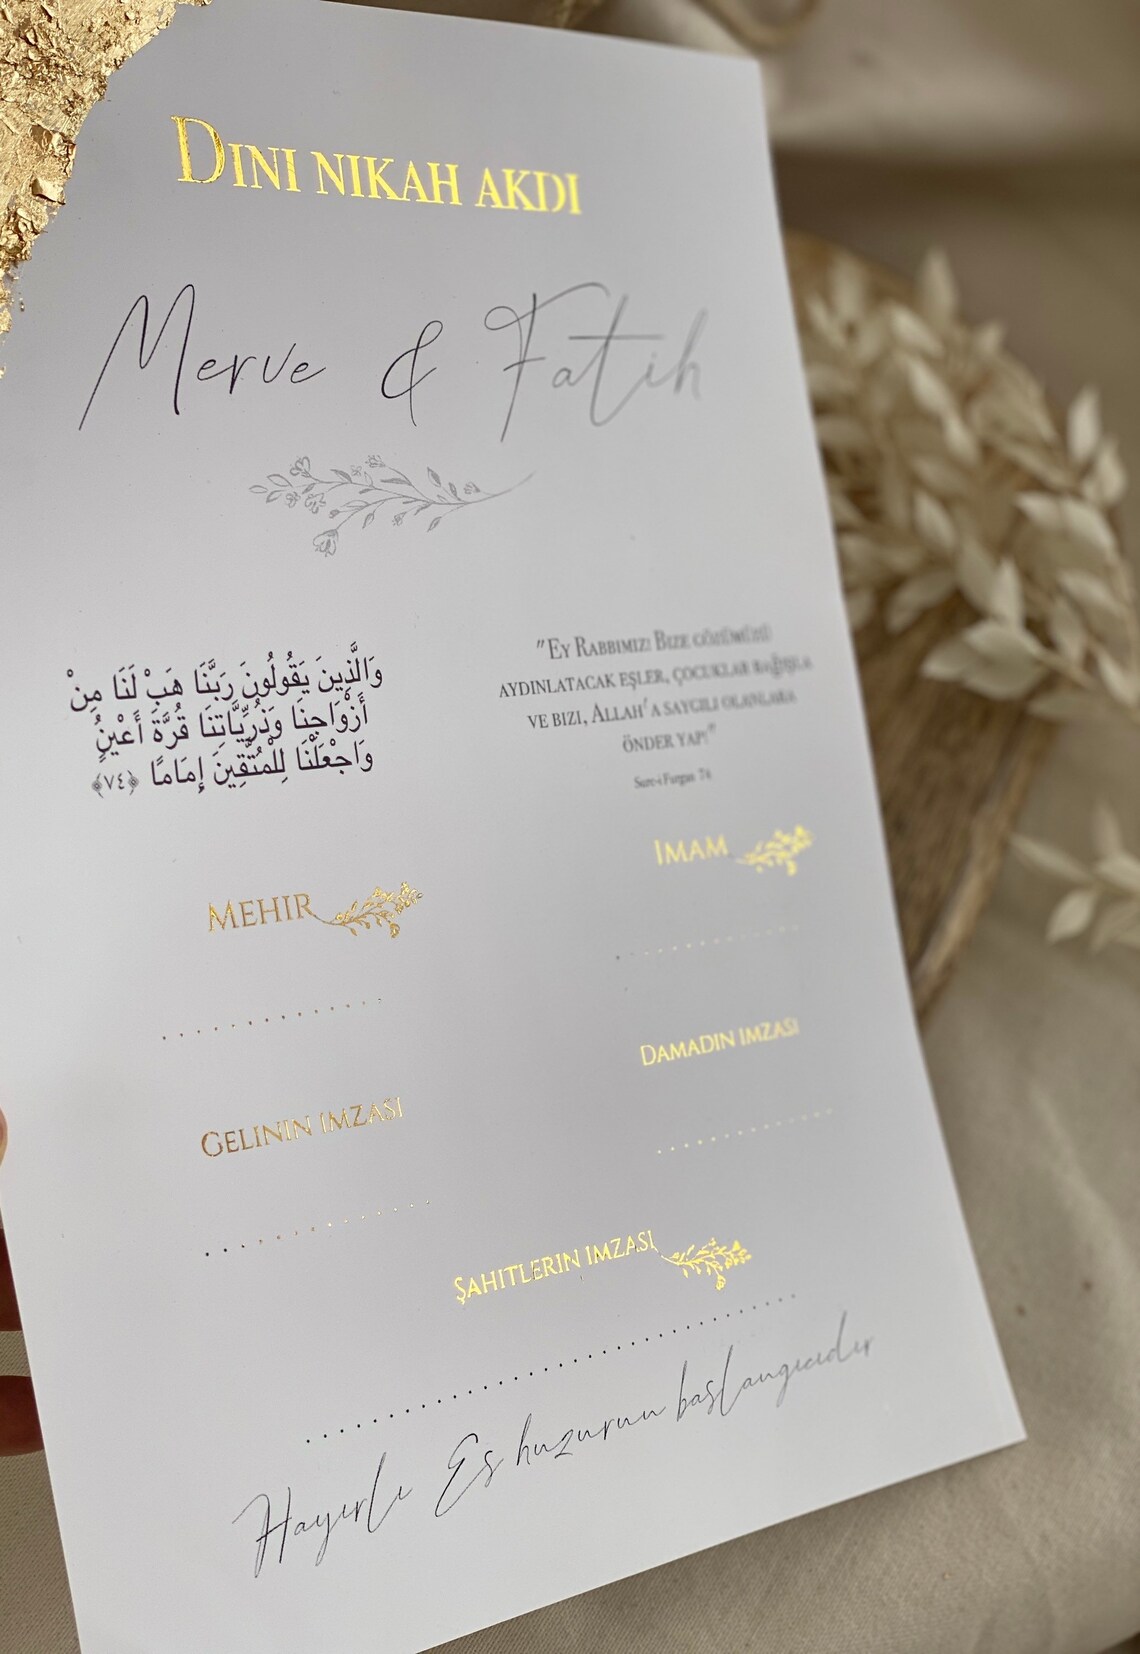 DINI NIKAH AKDI
Merve & Fatih
وَالَّذِينَ يَقُولُونَ رَبَّنَا هَبْ لَنَا مِنْ
أَزْوَاجِنَا وَذُرِّيَّاتِنَا قُرَّةَ أَعْيُنٍ
وَاجْعَلْنَا لِلْمُتَّقِينَ إِمَامًا ﴿٧٤﴾
"EY RABBIMIZ! BIZE GÖZÜMÜZÜ
AYDINLATACAK EŞLER, ÇOCUKLAR BAĞIŞLA
VE BIZI, ALLAH'A SAYGILI OLANLARA
ÖNDER YAP!"
Sure-i Furgan 74
MEHIR
IMAM
GELININ IMZASI
DAMADIN IMZASI
ŞAHITLERIN IMZASI
Hayırlı Eş huzurun başlangıcıdır